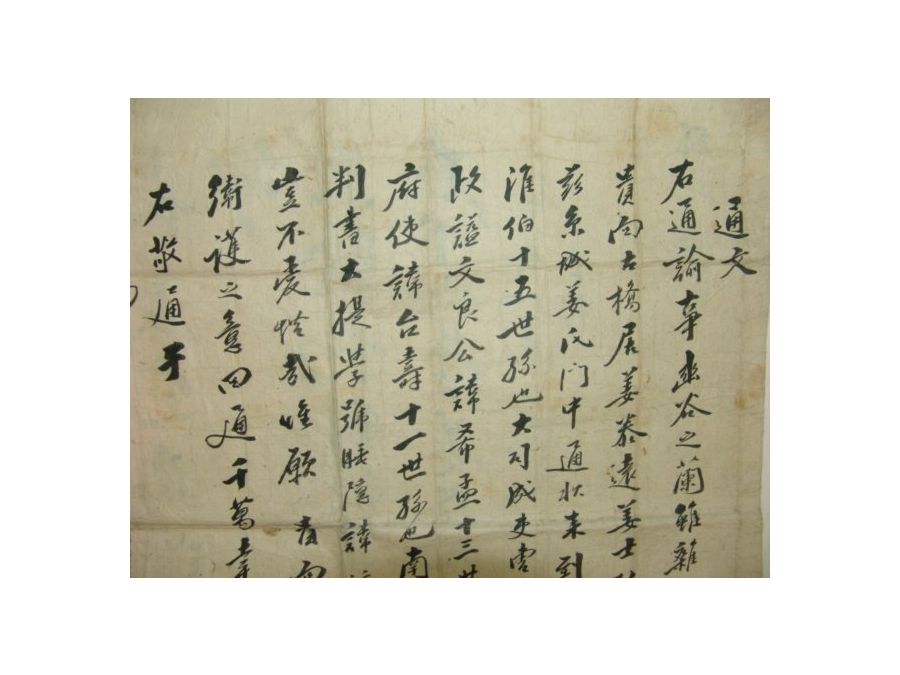 通文
右通諭事幽谷之蘭雖雜
貴面古橋居姜泰遠姜士
玆京城姜氏門中通狀来到
淮伯十五世孫也大司成吏曹
政諡文良公諱希孟十三世
府使諱台壽十一世孫也南
判書大提學號睡隱諱
豈不愛惜哉惟願
衛護之意回通千萬幸
右敬通于